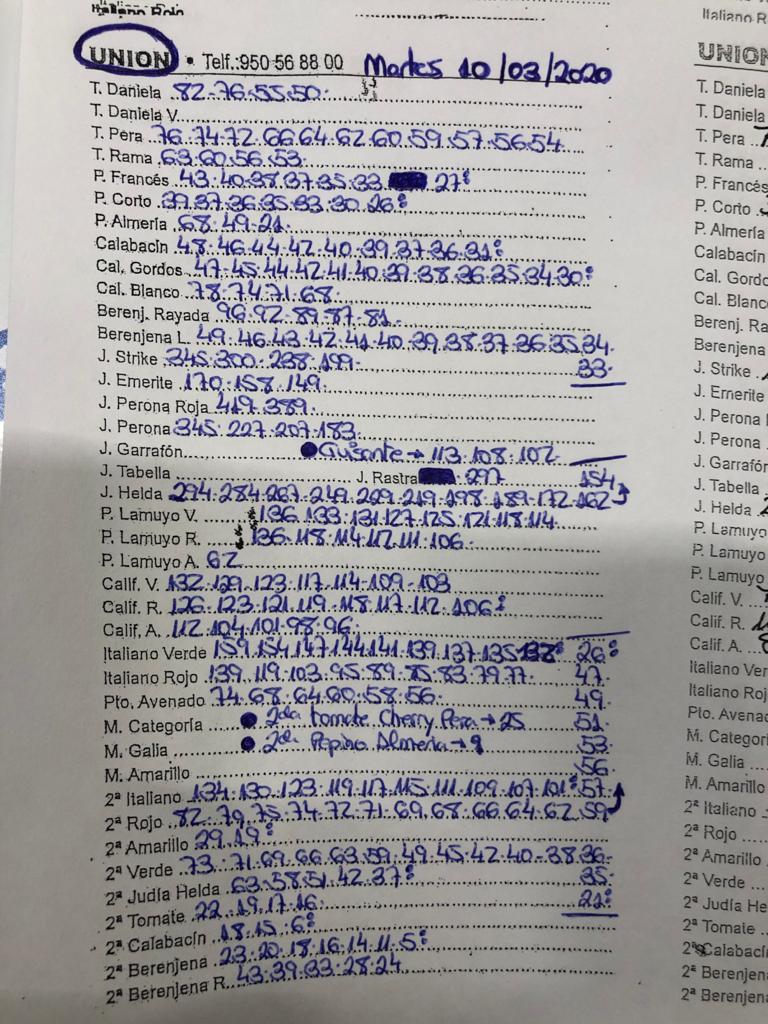 Italiano Rojo
UNION • Telf.:950 56 88 00 Martes 10/03/2020
T. Daniela 82.76.55.50.
T. Daniela V.
T. Pera 76.74.72.66.64.62.60.59.57.56.54.
T. Rama 63.60.56.53.
P. Francés 43.40.38.37.35.33 27:
P. Corto 39.37.36.35.33.30.26:
P. Almería 68.49.21.
Calabacín 48.46.44.42.40.39.37.36.31:
Cal. Gordos 47.45.44.42.41.40.39.38.36.35.34.30:
Cal. Blanco 78.74.71.68.
Berenj. Rayada 96.92.89.87.81.
Berenjena L. 49.46.43.42.41.40.39.38.37.36.35.34.
J. Strike 345.300.238.199 33.
J. Emerite 170.158.149.
J. Perona Roja 419.389.
J. Perona 345.227.207.183.
J. Garrafón Guisante → 113.108.102
J. Tabella J. Rastra 297 154
J. Helda 294.284.267.249.229.219.198.189.172.162
P. Lamuyo V. 136.133.131.127.125.121.118.114
P. Lamuyo R. 136.118.114.112.111.106.
P. Lamuyo A. 62
Calif. V. 132.129.123.117.114.109.103
Calif. R. 126.123.121.119.118.117.112.106:
Calif. A. 112.104.101.98.96.
Italiano Verde 159.154.147.144.141.139.137.135.132: 26:
Italiano Rojo 139.119.103.95.89.85.83.79.77. 47.
Pto. Avenado 74.68.64.60.58.56. 49.
M. Categoría 2da tomate Cherry Pera → 25 51.
M. Galia 2da Pepino Almeria → 9 53.
M. Amarillo 56
2ª Italiano 134.130.123.119.117.115.111.109.107.101: 57.
2ª Rojo 82.79.75.74.72.71.69.68.66.64.62.59
2ª Amarillo 29.19:
2ª Verde 73.71.69.66.63.59.49.45.42.40.38.36.
2ª Judía Helda 63.58.51.42.37: 35.
2ª Tomate 22.19.17.16. 21:
2ª Calabacín 18.15.6:
2ª Berenjena 23.20.18.16.14.11.5:
2ª Berenjena R. 43.39.33.28.24
Italiano R
UNION
T. Daniela
T. Daniela
T. Pera
T. Rama
P. Francés
P. Corto
P. Almería
Calabacín
Cal. Gordo
Cal. Blanc
Berenj. Ra
Berenjena
J. Strike
J. Emerite
J. Perona
J. Perona
J. Garrafó
J. Tabella
J. Helda
P. Lamuyo
P. Lamuyo
P. Lamuyo
Calif. V.
Calif. R.
Calif. A.
Italiano Ver
Italiano Roj
Pto. Avenad
M. Categor
M. Galia
M. Amarillo
2ª Italiano
2ª Rojo
2ª Amarillo
2ª Verde
2ª Judía He
2ª Tomate
2ª Calabací
2ª Berenjen
2ª Berenjen